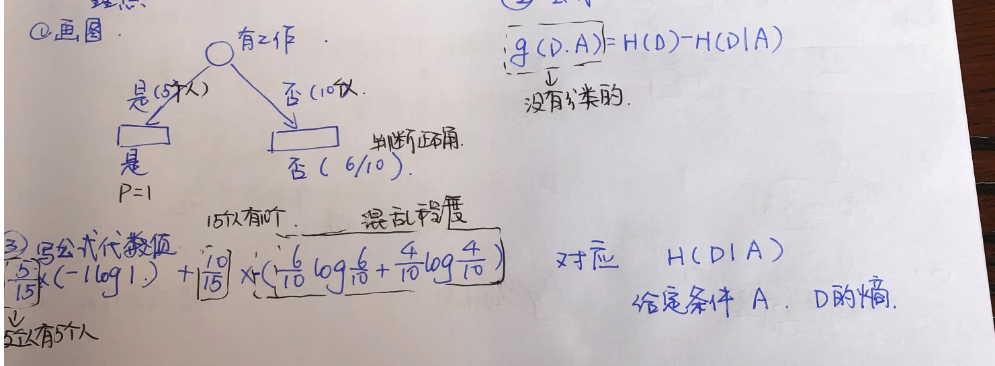 ①画图.
有工作.
是(5个人)
否(10个人.
是
P=1
否(6/10).
判断正确.
g(D.A)=H(D)-H(D|A)
没有分类的.
15个人有10个.
混乱程度
③写公式代数值
5/15×(-1log1.)+10/15×-(6/10log6/10+4/10log4/10)
对应 H(D|A)
给定条件A. D的熵.
15个人有5个人